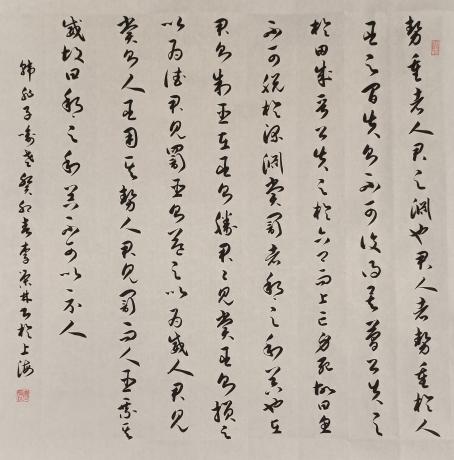 勢重者人君之淵也君人者勢重於人
臣之間失則不可復得矣簡公失之
於田成晉公失之於六卿而上亡身死故曰魚
不可脫於深淵賞罰者邦之利器也在
君則制臣在臣則勝君々見賞臣則損之
以為德君見罰臣則益之以為威人君見
賞則人臣用其勢人君見罰而人臣乘其
威故曰邦之利器不可以示人
韓非子喻老癸卯春李源林書於上海